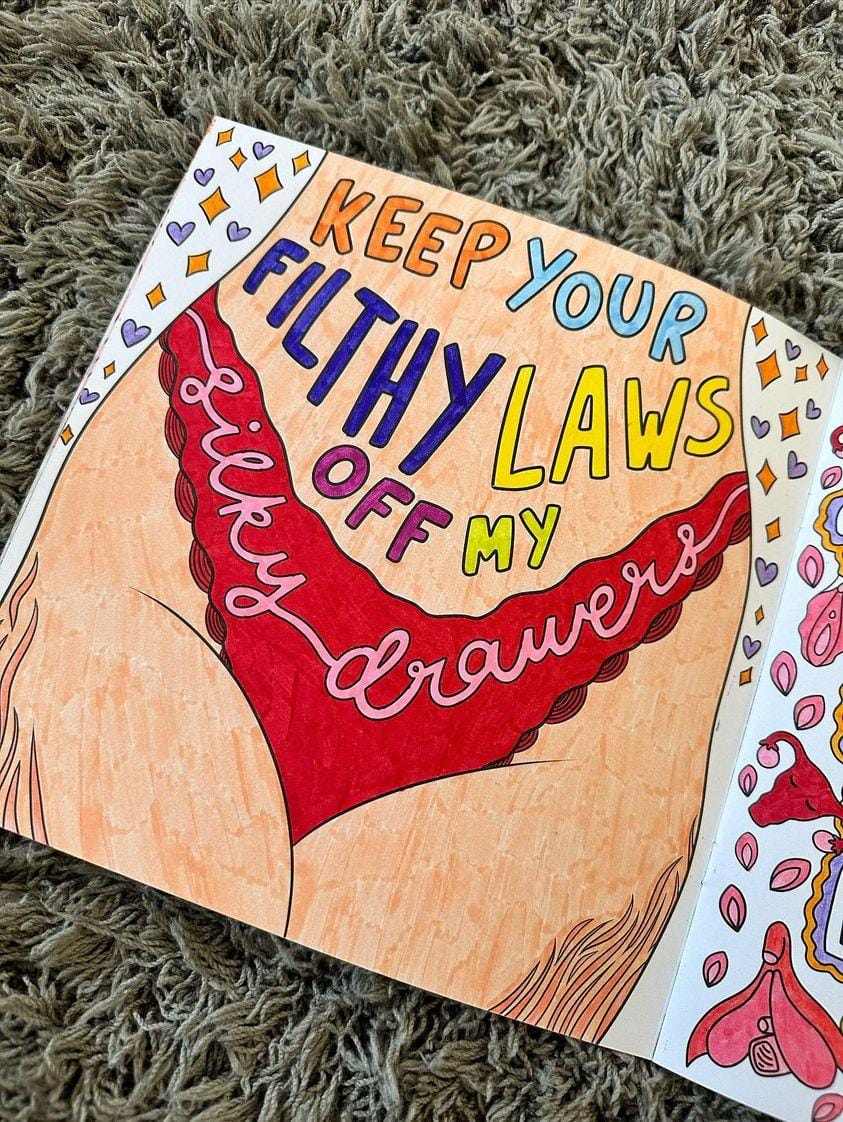 KEEP YOUR
FILTHY LAWS
OFF MY
silky
drawers